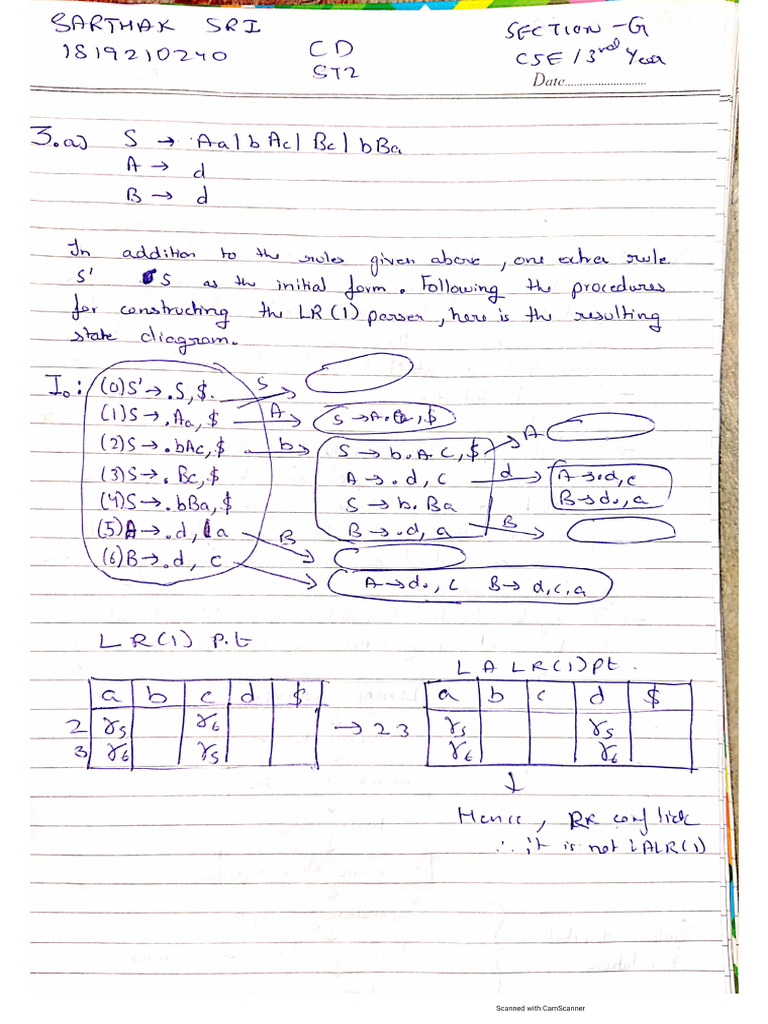 SARTHAK SRI
1819210240
CD
ST2
SECTION - G
CSE / 3rd Year
Date..........................
3.a) S → Aa | b Ac | Bc | bBa
A → d
B → d
In addition to the rules given above, one extra rule
S' S as the initial form. Following the procedures
for constructing the LR(1) parser, here is the resulting
state diagram.
I0: (0) S' → .S, $. S
(1) S → .Aa, $ A S → A.a, $
(2) S → .bAc, $ b S → b.A C, $ A
(3) S → . Bc, $ A → . d, C d A → .d, c
(4) S → .bBa, $ S → b. Ba B → d., a
(5) A → .d, a B B → .d, a B
(6) B → .d, c A → d., C B → d, c, a
LR(1) p.t
LALR(1) pt.
a b c d $
2 r5 r6
3 r6 r5
→ 23
a b c d $
r5 r5
r6 r6
↓
Hence, RR conflick
∴ it is not LALR(1)
Scanned with CamScanner